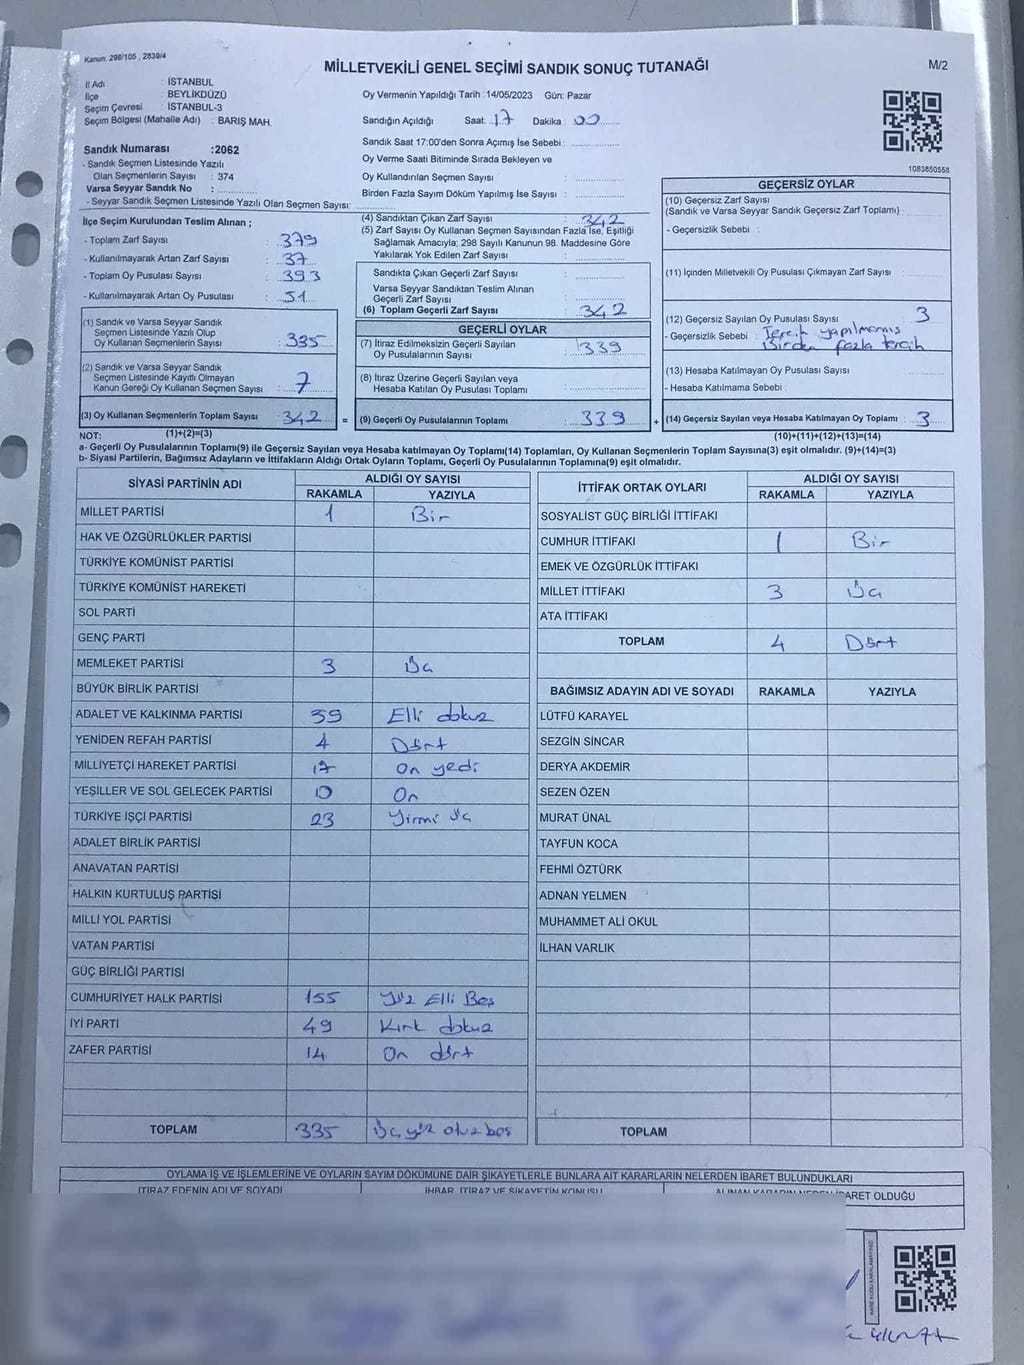 Kanun. 298/105 , 2839/4
MİLLETVEKİLİ GENEL SEÇİMİ SANDIK SONUÇ TUTANAĞI
M/2
İl Adı : İSTANBUL
İlçe : BEYLİKDÜZÜ
Seçim Çevresi : İSTANBUL-3
Seçim Bölgesi (Mahalle Adı) : BARIŞ MAH.
Sandık Numarası :2062
- Sandık Seçmen Listesinde Yazılı
Olan Seçmenlerin Sayısı : 374
Varsa Seyyar Sandık No :
- Seyyar Sandık Seçmen Listesinde Yazılı Olan Seçmen Sayısı:
Oy Vermenin Yapıldığı Tarih :14/05/2023 Gün: Pazar
Sandığın Açıldığı Saat: 17 Dakika : 00
Sandık Saat 17:00'den Sonra Açımış İse Sebebi :
Oy Verme Saati Bitiminde Sırada Bekleyen ve
Oy Kullandırılan Seçmen Sayısı :
Birden Fazla Sayım Döküm Yapılmış İse Sayısı :
1083850558
İlçe Seçim Kurulundan Teslim Alınan ;
- Toplam Zarf Sayısı : 379
- Kullanılmayarak Artan Zarf Sayısı : 37
- Toplam Oy Pusulası Sayısı : 393
- Kullanılmayarak Artan Oy Pusulası : 51
(1) Sandık ve Varsa Seyyar Sandık
Seçmen Listesinde Yazılı Olup
Oy Kullanan Seçmenlerin Sayısı : 335
(2) Sandık ve Varsa Seyyar Sandık
Seçmen Listesinde Kayıtlı Olmayan
Kanun Gereği Oy Kullanan Seçmen Sayısı : 7
(3) Oy Kullanan Seçmenlerin Toplam Sayısı : 342 =
(4) Sandıktan Çıkan Zarf Sayısı : 342
(5) Zarf Sayısı Oy Kullanan Seçmen Sayısından Fazla İse, Eşitliği
Sağlamak Amacıyla; 298 Sayılı Kanunun 98. Maddesine Göre
Yakılarak Yok Edilen Zarf Sayısı :
Sandıkta Çıkan Geçerli Zarf Sayısı :
Varsa Seyyar Sandıktan Teslim Alınan
Geçerli Zarf Sayısı :
(6) Toplam Geçerli Zarf Sayısı : 342
GEÇERLİ OYLAR
(7) İtiraz Edilmeksizin Geçerli Sayılan
Oy Pusulalarının Sayısı : 339
(8) İtiraz Üzerine Geçerli Sayılan veya
Hesaba Katılan Oy Pusulası Toplamı :
(9) Geçerli Oy Pusulalarının Toplamı : 339 +
GEÇERSİZ OYLAR
(10) Geçersiz Zarf Sayısı
(Sandık ve Varsa Seyyar Sandık Geçersiz Zarf Toplamı) :
- Geçersizlik Sebebi :
(11) İçinden Milletvekili Oy Pusulası Çıkmayan Zarf Sayısı
(12) Geçersiz Sayılan Oy Pusulası Sayısı : 3
- Geçersizlik Sebebi : Tercih yapılmamış
Birden fazla tercih
(13) Hesaba Katılmayan Oy Pusulası Sayısı :
- Hesaba Katılmama Sebebi :
(14) Geçersiz Sayılan veya Hesaba Katılmayan Oy Toplamı : 3
NOT: (1)+(2)=(3) (10)+(11)+(12)+(13)=(14)
a- Geçerli Oy Pusulalarının Toplamı(9) ile Geçersiz Sayılan veya Hesaba katılmayan Oy Toplamı(14) Toplamları, Oy Kullanan Seçmenlerin Toplam Sayısına(3) eşit olmalıdır. (9)+(14)=(3)
b- Siyasi Partilerin, Bağımsız Adayların ve İttifakların Aldığı Ortak Oyların Toplamı, Geçerli Oy Pusulalarının Toplamına(9) eşit olmalıdır.
SİYASİ PARTİNİN ADI ALDIĞI OY SAYISI
RAKAMLA YAZIYLA
MİLLET PARTİSİ 1 Bir
HAK VE ÖZGÜRLÜKLER PARTİSİ
TÜRKİYE KOMÜNİST PARTİSİ
TÜRKİYE KOMÜNİST HAREKETİ
SOL PARTİ
GENÇ PARTİ
MEMLEKET PARTİSİ 3 Üç
BÜYÜK BİRLİK PARTİSİ
ADALET VE KALKINMA PARTİSİ 59 Elli dokuz
YENİDEN REFAH PARTİSİ 4 Dört
MİLLİYETÇİ HAREKET PARTİSİ 17 On yedi
YEŞİLLER VE SOL GELECEK PARTİSİ 10 On
TÜRKİYE İŞÇİ PARTİSİ 23 Yirmi üç
ADALET BİRLİK PARTİSİ
ANAVATAN PARTİSİ
HALKIN KURTULUŞ PARTİSİ
MİLLİ YOL PARTİSİ
VATAN PARTİSİ
GÜÇ BİRLİĞİ PARTİSİ
CUMHURİYET HALK PARTİSİ 155 Yüz Elli Beş
İYİ PARTİ 49 Kırk dokuz
ZAFER PARTİSİ 14 On dört
TOPLAM 335 Üç yüz otuz beş
İTTİFAK ORTAK OYLARI ALDIĞI OY SAYISI
RAKAMLA YAZIYLA
SOSYALİST GÜÇ BİRLİĞİ İTTİFAKI
CUMHUR İTTİFAKI 1 Bir
EMEK VE ÖZGÜRLÜK İTTİFAKI
MİLLET İTTİFAKI 3 Üç
ATA İTTİFAKI
TOPLAM 4 Dört
BAĞIMSIZ ADAYIN ADI VE SOYADI RAKAMLA YAZIYLA
LÜTFÜ KARAYEL
SEZGİN SİNCAR
DERYA AKDEMİR
SEZEN ÖZEN
MURAT ÜNAL
TAYFUN KOCA
FEHMİ ÖZTÜRK
ADNAN YELMEN
MUHAMMET ALİ OKUL
İLHAN VARLIK
TOPLAM
OYLAMA İŞ VE İŞLEMLERİNE VE OYLARIN SAYIM DÖKÜMÜNE DAİR ŞİKAYETLERLE BUNLARA AİT KARARLARIN NELERDEN İBARET BULUNDUKLARI
İTİRAZ EDENİN ADI VE SOYADI İHBAR, İTİRAZ VE ŞİKAYETİN KONUSU ALINAN KARARIN NEDEN İBARET OLDUĞU